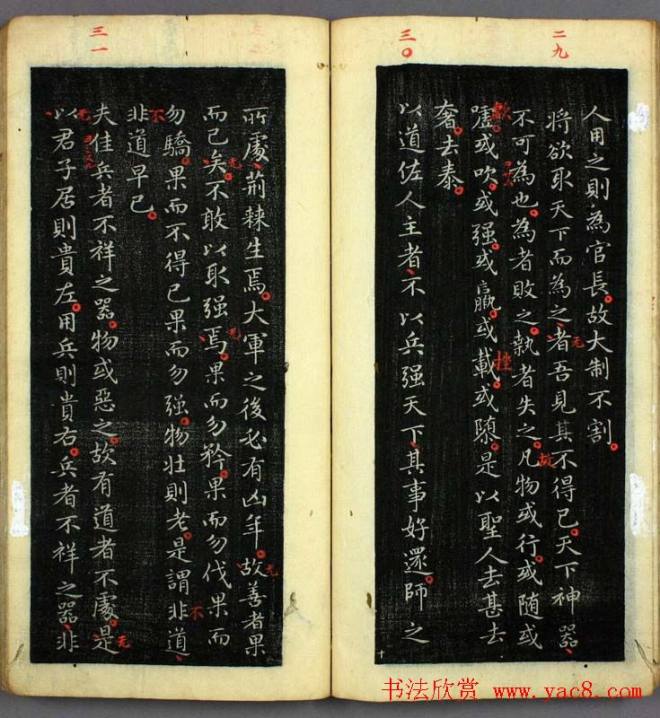 二九
人用之則為官長故大制不割
將欲取天下而為之者吾見其不得已天下神器
不可為也為者敗之執者失之凡物或行或隨或
噓或吹或强或羸或載或隳是以聖人去甚去
奢去泰
三〇
以道佐人主者不以兵强天下其事好還師之
所處荊棘生焉大軍之後必有凶年故善者果
而已矣不敢以取强焉果而勿矜果而勿伐果而
勿驕果而不得已果而勿强物壯則老是謂非道
非道早已
三一
夫佳兵者不祥之器物或惡之故有道者不處是
以君子居則貴左用兵則貴右兵者不祥之器非
无
故
挫
无
无
无
不
不
无
无
书法欣赏 www.yac8.com